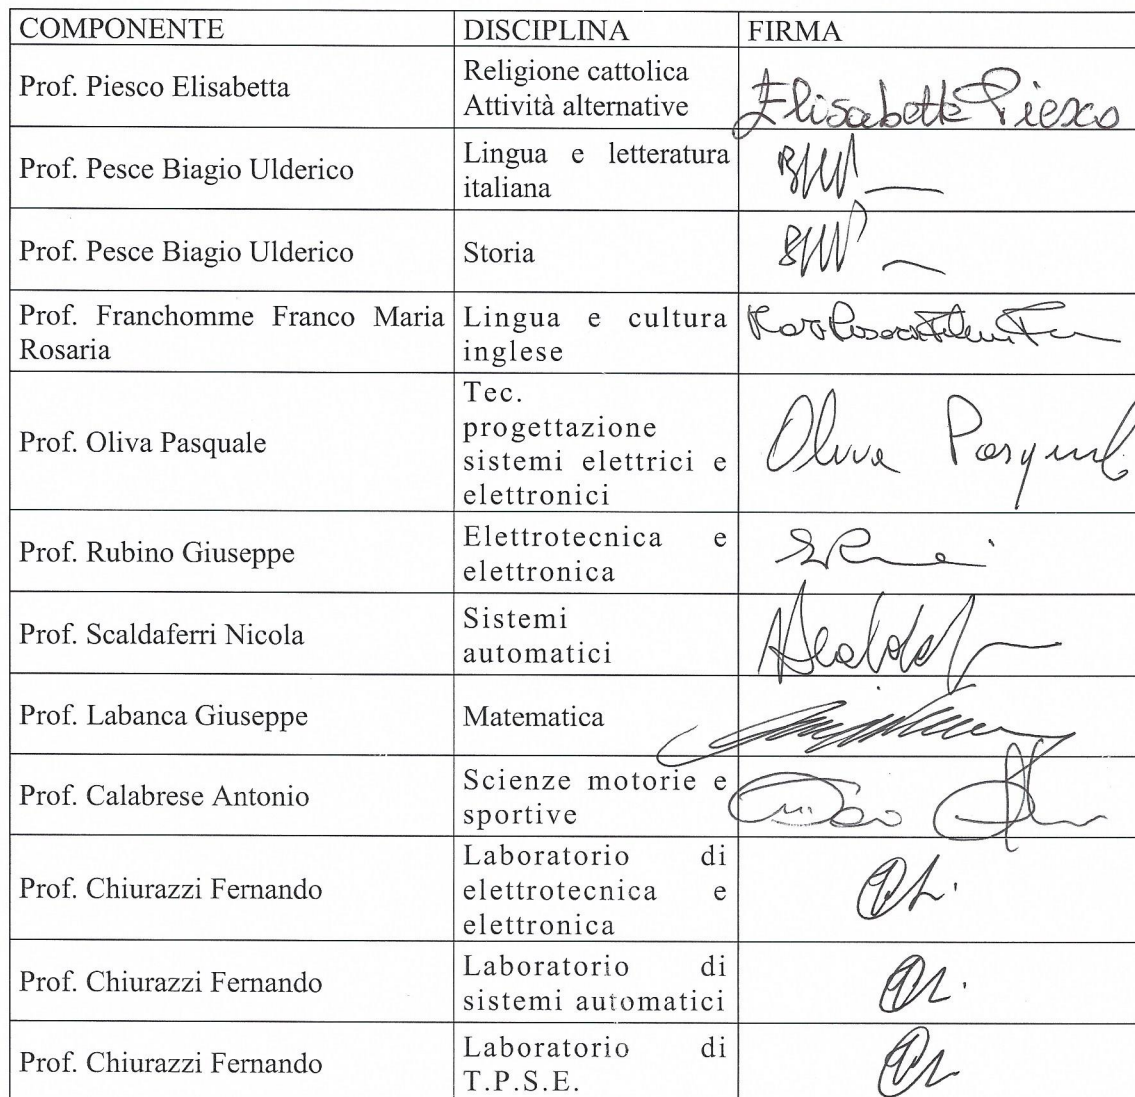 COMPONENTE DISCIPLINA FIRMA
Prof. Piesco Elisabetta
Religione cattolica
Attività alternative
Elisabetta Piesco
Prof. Pesce Biagio Ulderico
Lingua e letteratura
italiana
Prof. Pesce Biagio Ulderico
Storia
Prof. Franchomme Franco Maria
Rosaria
Lingua e cultura
inglese
Prof. Oliva Pasquale
Tec.
progettazione
sistemi elettrici e
elettronici
Oliva Pasquale
Prof. Rubino Giuseppe
Elettrotecnica e
elettronica
Prof. Scaldaferri Nicola
Sistemi
automatici
Prof. Labanca Giuseppe
Matematica
Prof. Calabrese Antonio
Scienze motorie e
sportive
Prof. Chiurazzi Fernando
Laboratorio di
elettrotecnica e
elettronica
Prof. Chiurazzi Fernando
Laboratorio di
sistemi automatici
Prof. Chiurazzi Fernando
Laboratorio di
T.P.S.E.